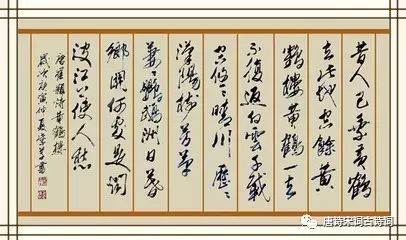 昔人已乘黄鶴
去此地空餘黄
鶴樓黄鶴一去
不復返白雲千載
空悠々晴川歷々
漢陽樹芳草
萋々鸚鵡洲日暮
鄉關何處是煙
波江上使人愁
唐崔顥詩黄鶴樓
歲次庚寅仲夏書
唐诗宋词古诗词